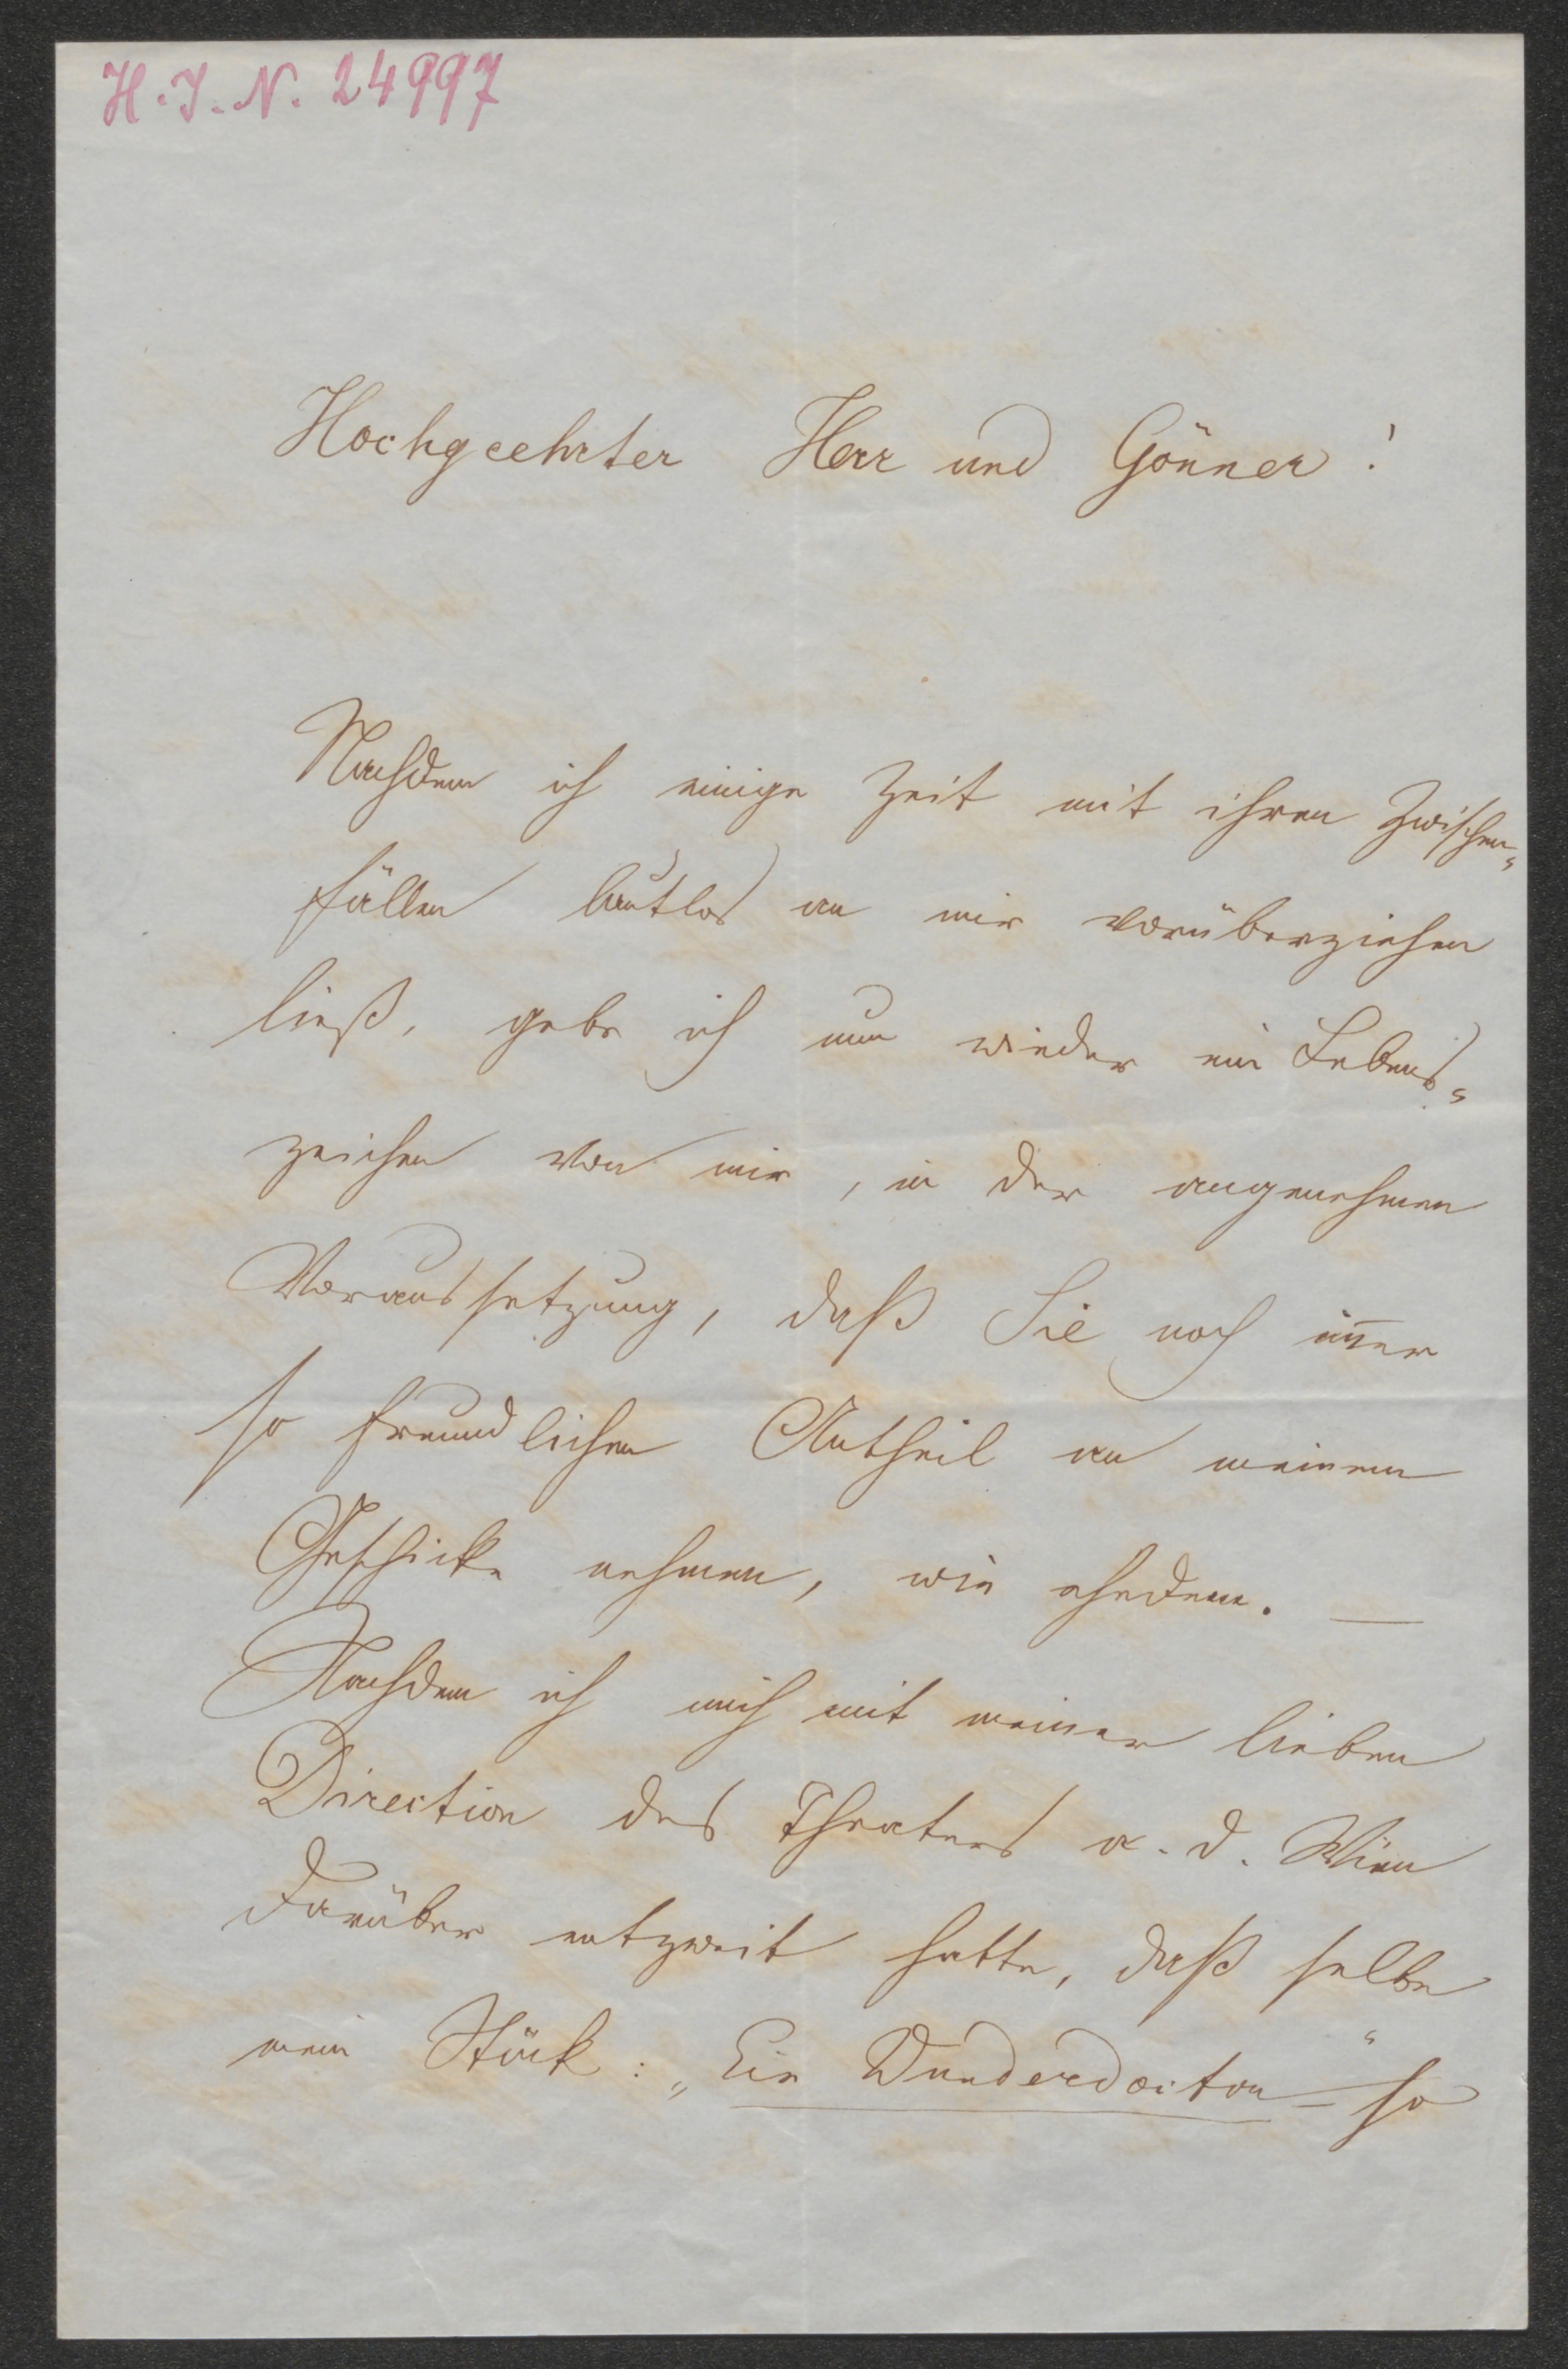 H.I.N. 24997
Hochgeehrter Herr und Gönner!
Nachdem ich einige Zeit mit ihren Zwischen-
fällen lautlos an mir vorüberziehen
ließ, gebe ich nun wieder ein Lebens-
zeichen von mir, in der angenehmen
Voraussetzung, daß Sie noch im̅er
so freundlichen Antheil an meinem
Geschicke nehmen, wie ehedem. —
Nachdem ich mich mit meiner lieben
Direction des Theaters a. d. Wien
darüber entzweit hatte, daß selbe
mein Stück: „Ein Wunderdoctor" so